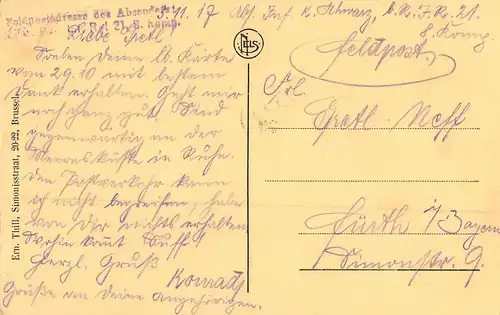 Feldpostadresse des Absenders:
21, 8. Komp.
3.11.17 Abs. Inf. K. Schwarz, b. R. I. R. 21.
8. Komp.
Feldpost.
Liebe Gretl
Soeben Deine lb. Karte
vom 29.10 mit bestem
Dank erhalten. Geht mir
noch ganz gut. Sind
gegenwärtig an der
Meeresküste in Ruhe.
Den Postverkehr kann
ich nicht begreifen, habe
von Dir nichts erhalten
Herzl. Gruß
Konrad
Grüße an Deine Angehörigen.
NELS
Ern. Thill, Simonisstraat, 20-22, Brussel.
Frl.
Gretl Neff
Fürth i/Bayern
Simonstr. 9.